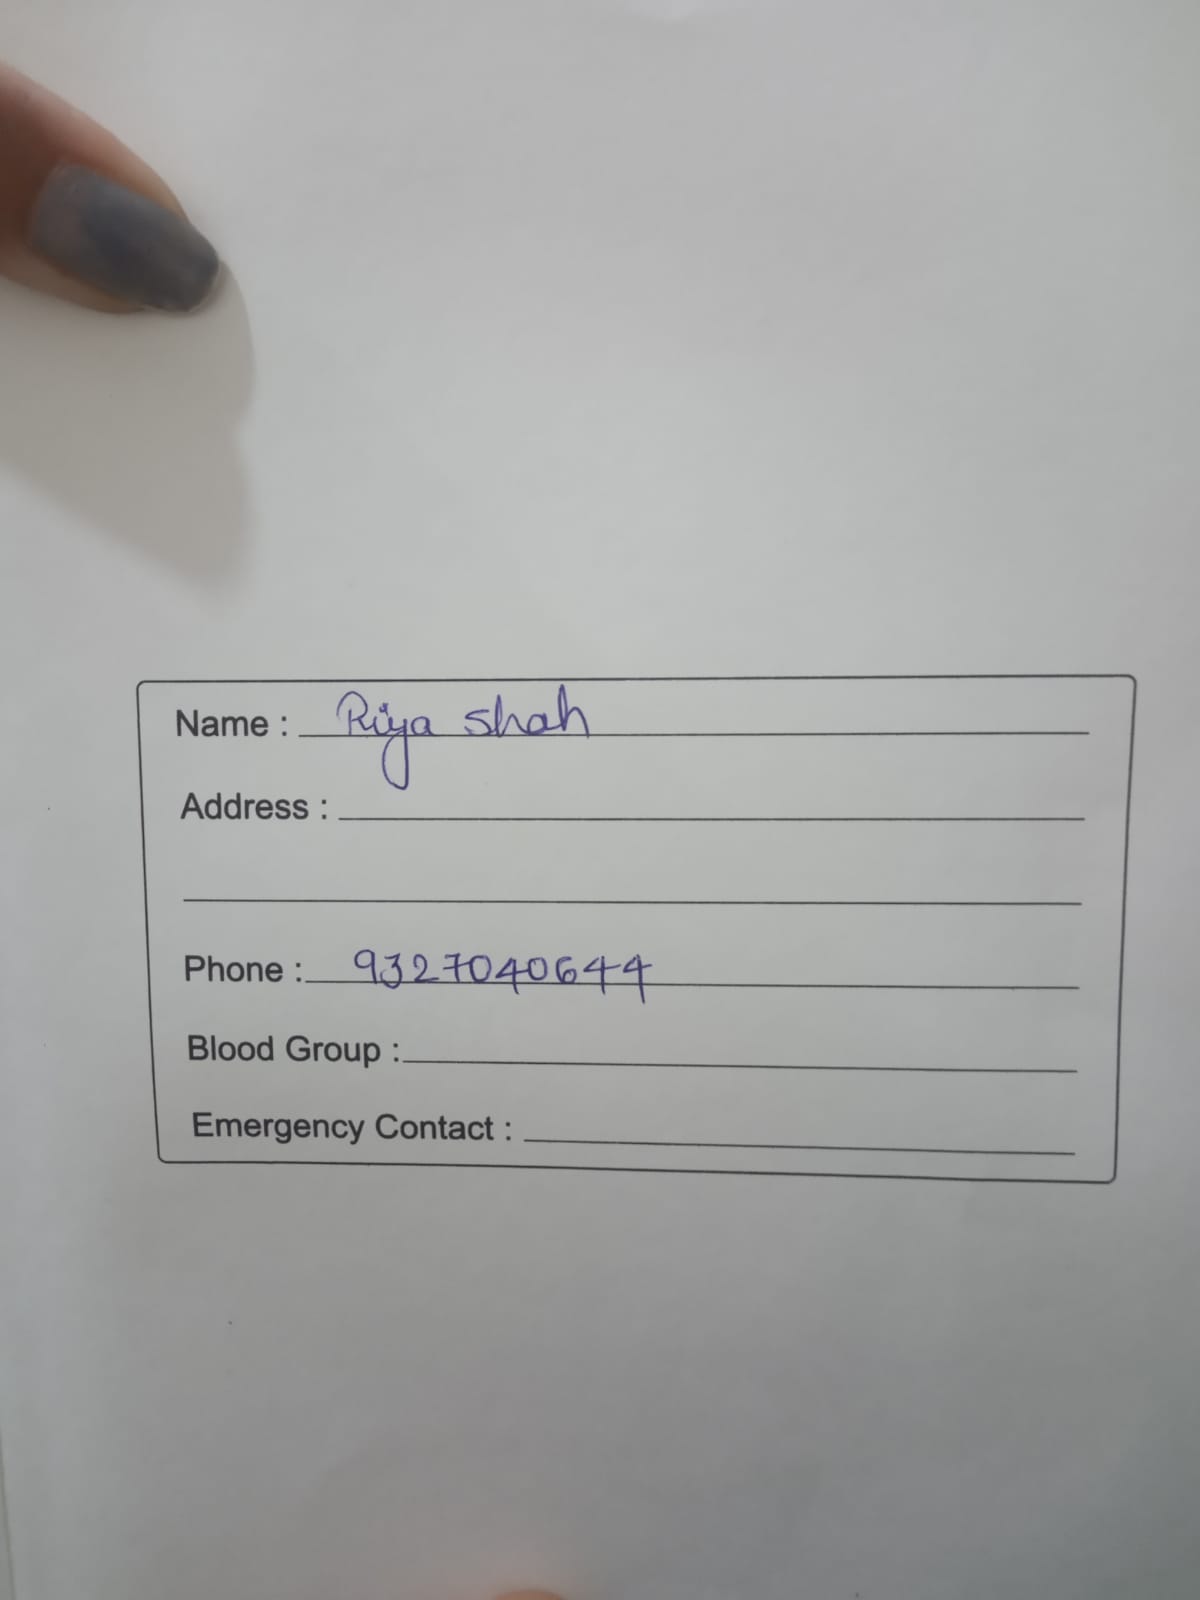 Name : Riya shah
Address :
Phone : 9327040644
Blood Group :
Emergency Contact :